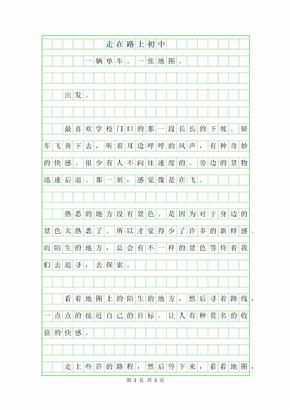 走在路上初中
一辆单车。一张地图。
出发。
最喜欢学校门口的那一段长长的下坡。骑
车飞奔下去,听着耳边呼呼的风声,有种奇妙
的快感。很少有人不向往速度的。旁边的景物
迅速后退。那一刻,感觉像是在飞。
熟悉的地方没有景色。是因为对于身边的
景色太熟悉了。所以才觉得少了许多的新鲜感。
而陌生的地方,总会有不一样的景色等待着我
们去追寻,去探索。
看着地图上的陌生的地方,然后寻着路线,
一点点的接近自己的目标。让人有种莫名的收
获的快感。
走上些许的路程,然后停下来,看看地图,
第 1 页 共 8 页